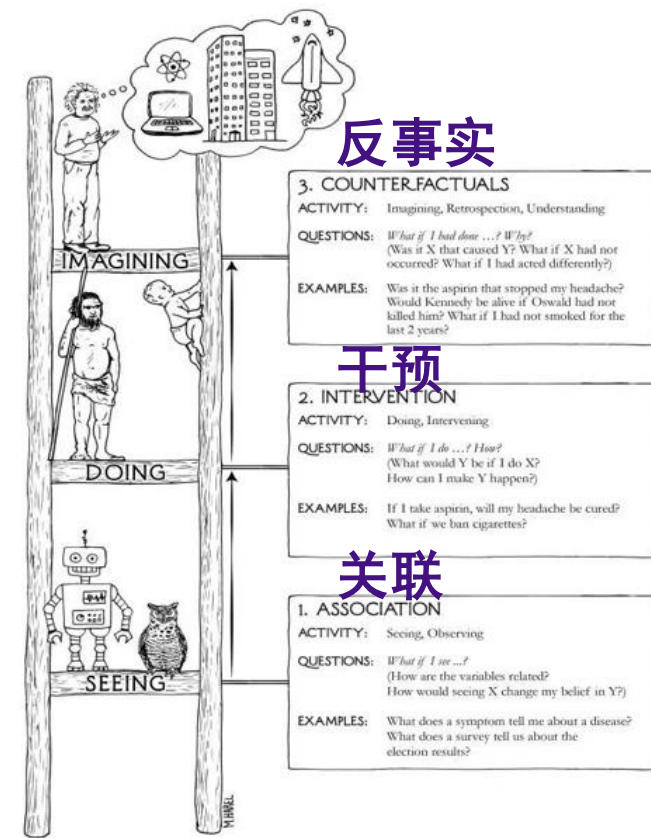 反事实
3. COUNTERFACTUALS
ACTIVITY: Imagining, Retrospection, Understanding
QUESTIONS: What if I had done ...? Why?
(Was it X that caused Y? What if X had not
occurred? What if I had acted differently?)
EXAMPLES: Was it the aspirin that stopped my headache?
Would Kennedy be alive if Oswald had not
killed him? What if I had not smoked for the
last 2 years?
IMAGINING
干预
2. INTERVENTION
ACTIVITY: Doing, Intervening
QUESTIONS: What if I do ...? How?
(What would Y be if I do X?
How can I make Y happen?)
EXAMPLES: If I take aspirin, will my headache be cured?
What if we ban cigarettes?
DOING
关联
1. ASSOCIATION
ACTIVITY: Seeing, Observing
QUESTIONS: What if I see ...?
(How are the variables related?
How would seeing X change my belief in Y?)
EXAMPLES: What does a symptom tell me about a disease?
What does a survey tell us about the
election results?
SEEING
M.HAREL